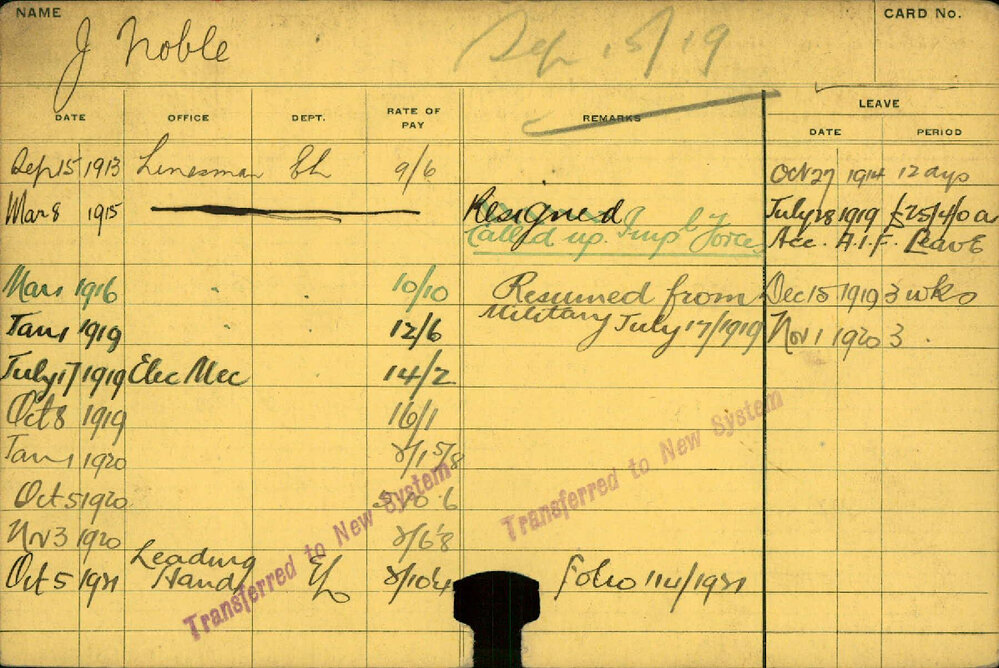 NAME
J Noble
Sep 15/19
CARD No.
DATE OFFICE DEPT. RATE OF PAY REMARKS LEAVE
DATE PERIOD
Sep 15 1913 Linesman EL 9/6 Oct 27 1914 12 days
Mar 8 1915 Resigned July 28 1919 £25/4/0 a
Called up. Imp'l Forces Acc. A.I.F. Leave
Mar 1 1916 " " 10/10 Resumed from Dec 15 1919 3 wks
Jan 1 1919 " " 12/6 Military July 17/1919 Nov 1 1920 3 "
July 17 1919 Elec Mec 14/2
Oct 8 1919 16/1
Jan 1 1920
Oct 5 1920
Nov 3 1920
Leading
Oct 5 1921 Hand folio 114/1921
Transferred to New System
Transferred to New System